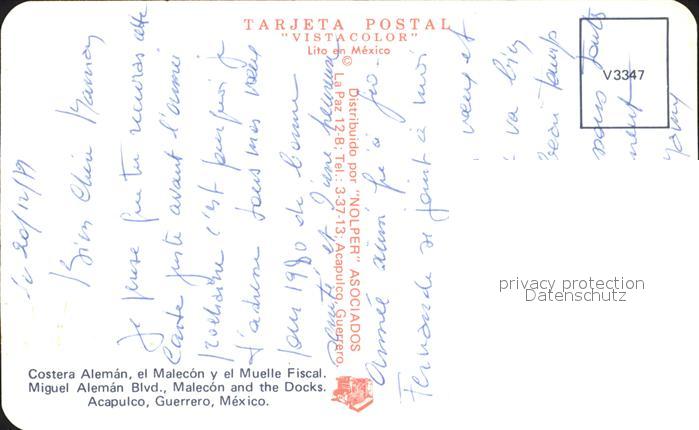 TARJETA POSTAL
"VISTACOLOR"
Lito en México
©
V3347
Distribuido por "NOLPER" ASOCIADOS
La Paz 12-B; Tel.: 3-37-13; Acapulco, Guerrero
le 20/12/79
Bien Chère Maman
Je pense que tu recevras cette
carte juste avant l'année
prochaine c'est pourquoi je
t'adresse tous mes vœux
pour 1980 de bonne
santé et d'une heureuse
année aussi
Fernande se joint à moi
vœux et
va bien
beau temps
privacy protection
Datenschutz
Costera Alemán, el Malecón y el Muelle Fiscal.
Miguel Alemán Blvd., Malecón and the Docks.
Acapulco, Guerrero, México.